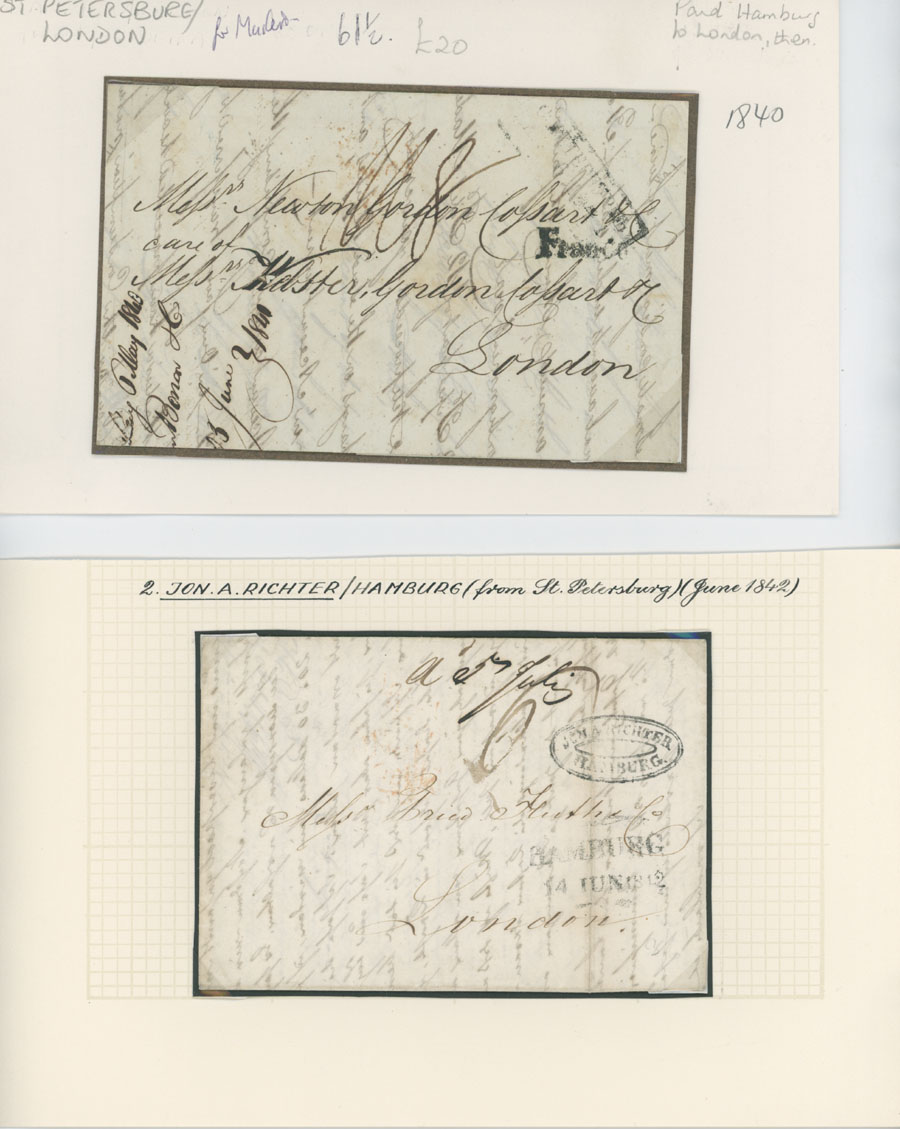 ST. PETERSBURG/
LONDON
61½.
£20
Paid Hamburg
to London, then.
1840
Messrs. Newton Gordon Cossart & C
care of
Messrs. Webster, Gordon Cossart & C
London
Franco
6 May 1840
June 3/1840
2. JON. A. RICHTER/HAMBURG (from St. Petersburg) (June 1842)
a 5 July
6
JON. A. RICHTER
HAMBURG.
Messrs Fried Huth & Co
HAMBURG
14 JUN 1842
London.